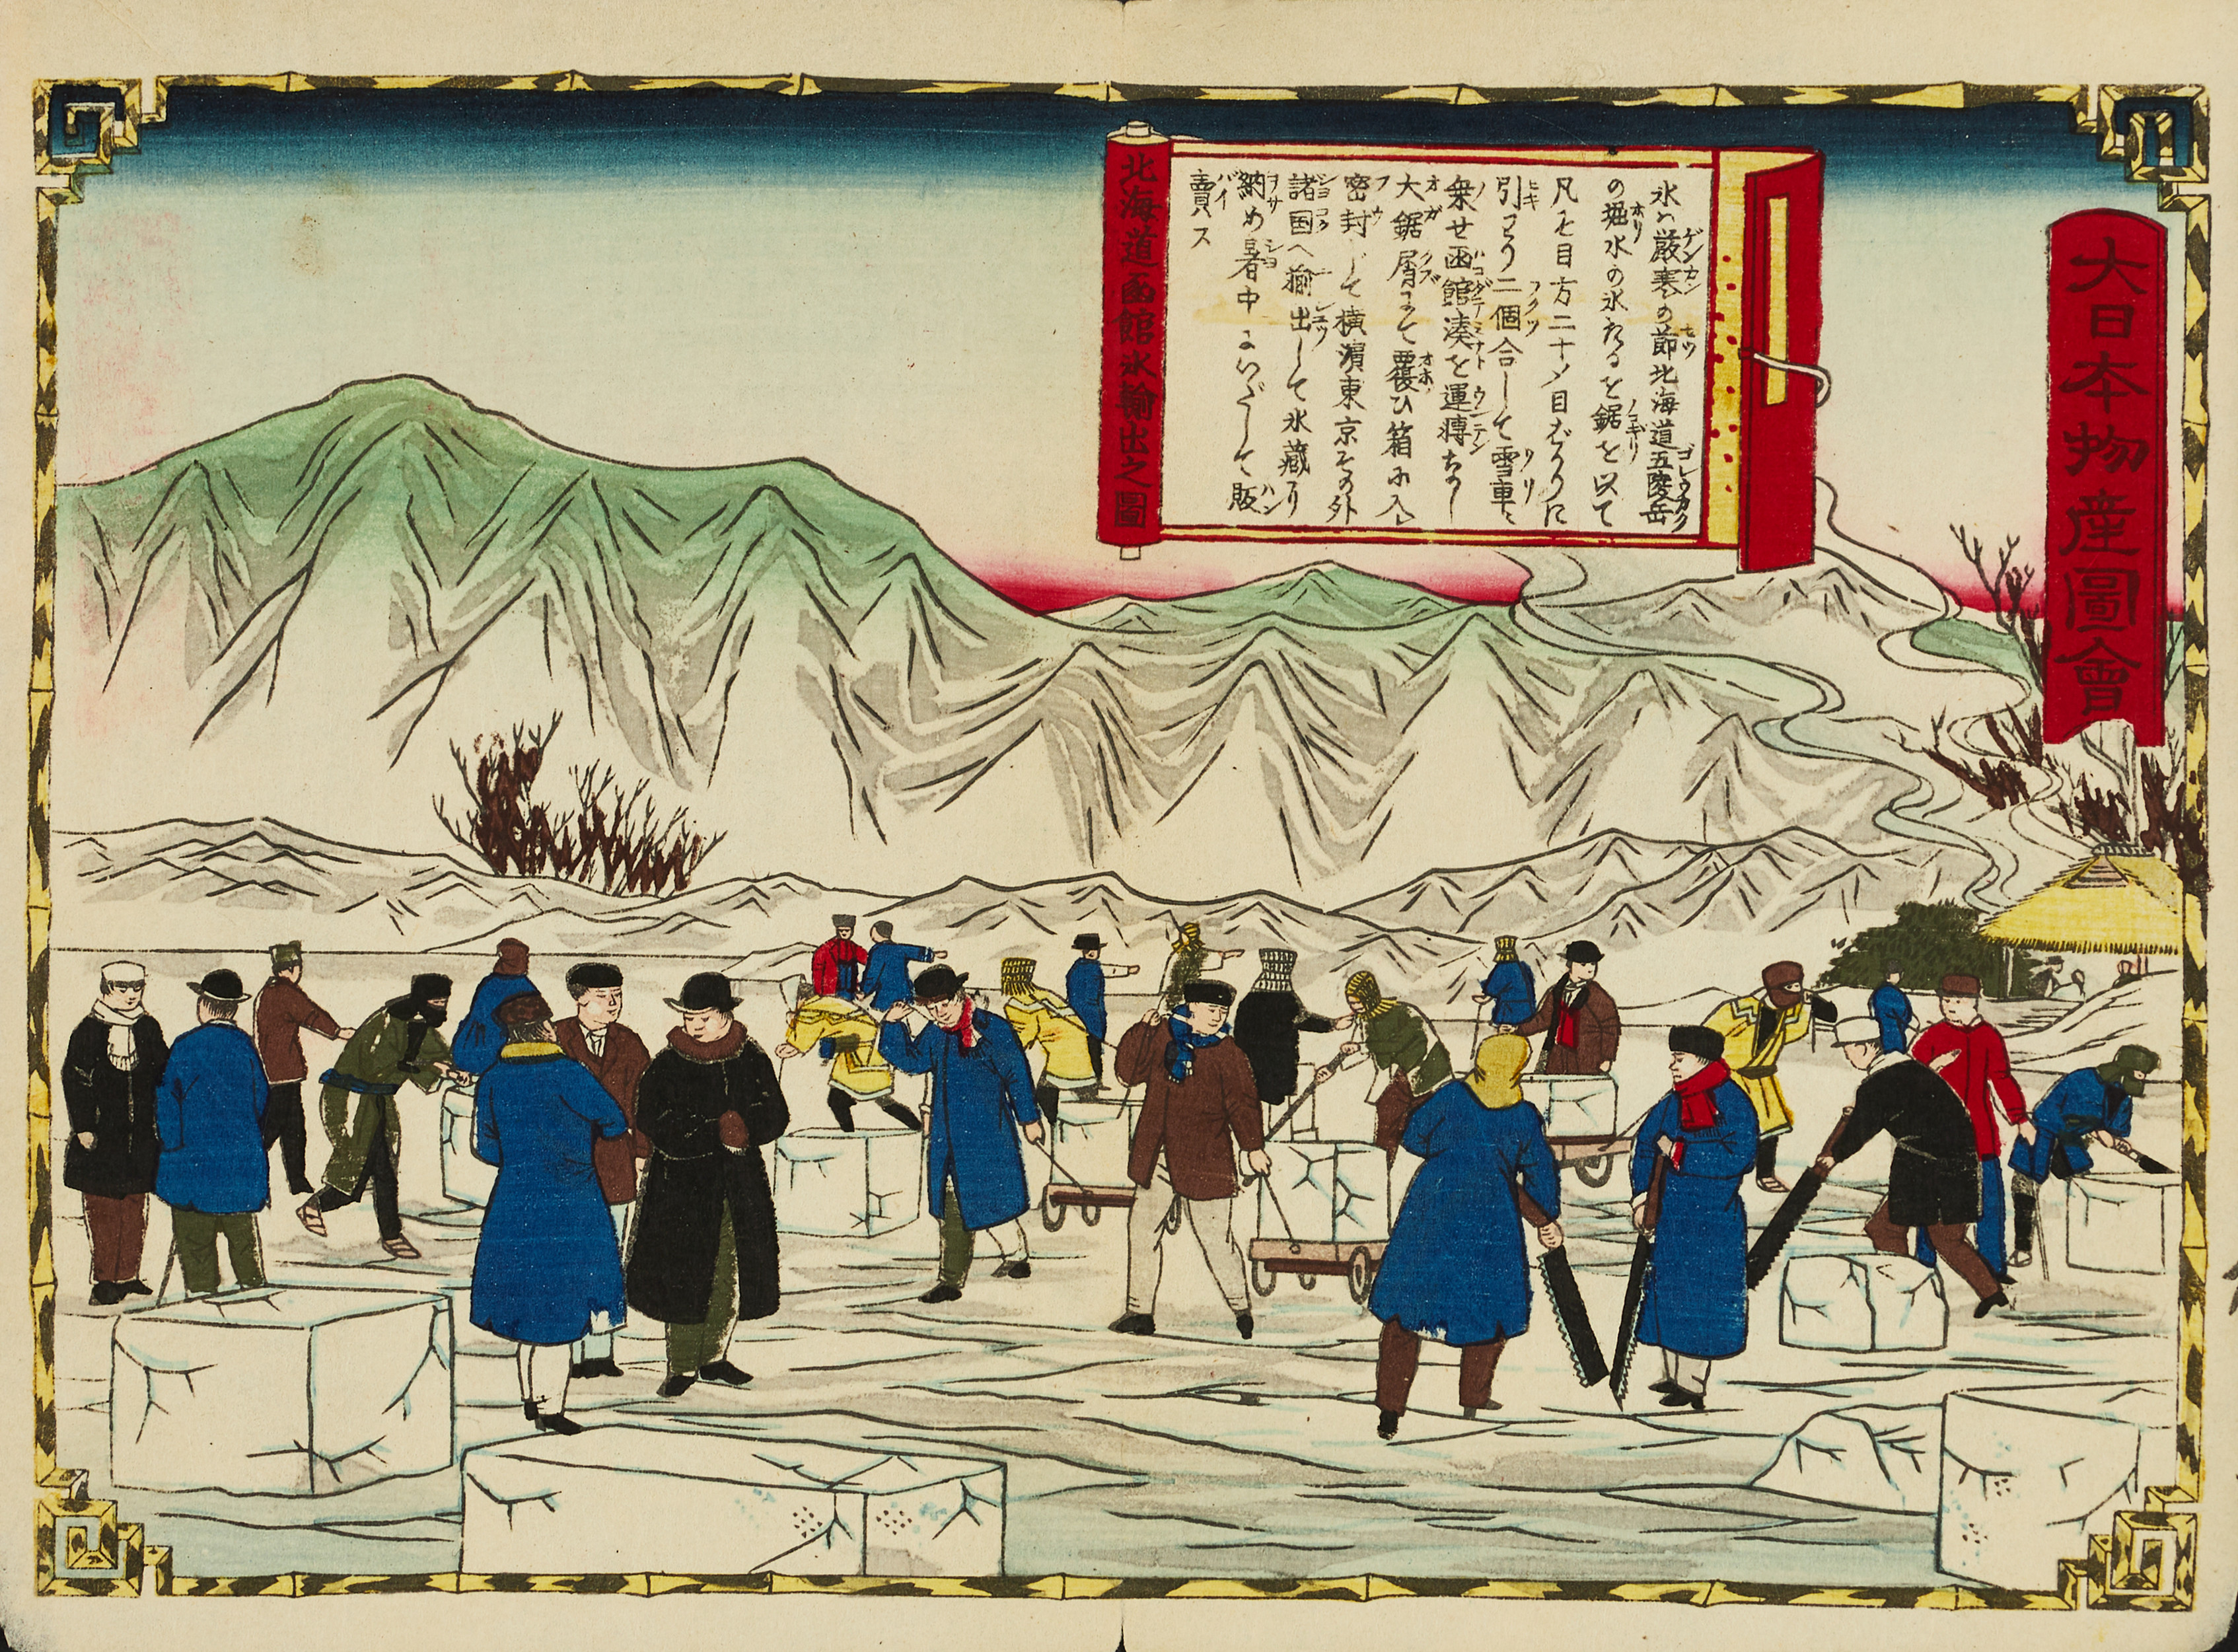 大日本物産圖會
氷ハ厳寒の節北海道五陵岳
の堀水の氷たるを鋸を以て
凡そ目方二十〆目ばかりに
引とり二個合して雪車に
乗せ函館湊を運轉なし
大鋸屑にて覆ひ箱に入
密封して横濱東京その外
諸国へ輸出して氷蔵に
納め暑中にいだして販
賣ス
北海道函館氷輸出之圖